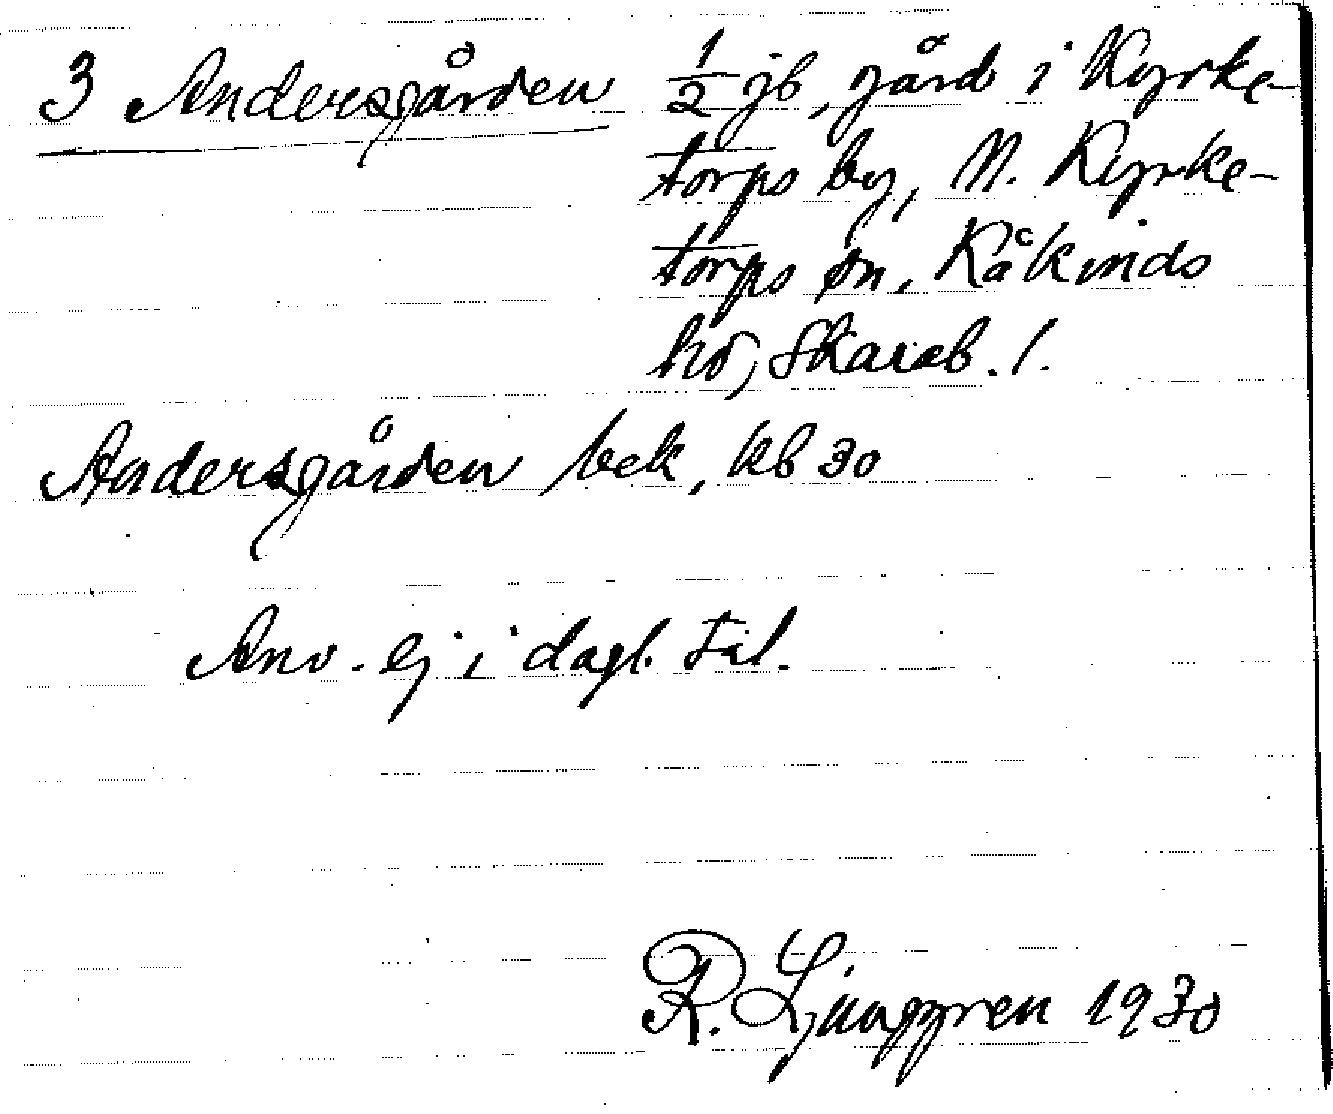 3 Andersgården 1/2 jb, gård i Kyrke-
torps by, N. Kyrke-
torps sn, Kåkinds
hd, Skarab. l.
Andersgården bek, kb 30
Anv. ej i dagl. tal.
R. Ljunggren 1930